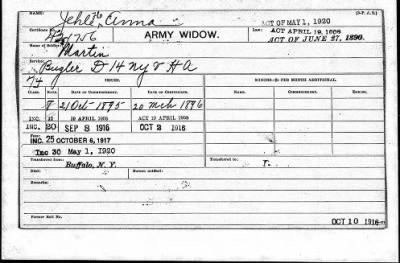 Jehle Anna
ACT OF MAY 1, 1920
(D-P. J. S.)
Certificate No.
ARMY WIDOW.
Law: ACT APRIL 19, 1908
ACT OF JUNE 27, 1890.
Name of Soldier:
Martin
Service:
Bugler D 14 NY H A
74
ISSUES.
MINORS—$2 PER MONTH ADDITIONAL.
CLASS.
RATE.
DATE OF CERTIFICATE.
DATE OF COMMENCEMENT.
NAME.
8 21 Oct 1895 20 Mch 1896
INC. 12 19 APRIL 1908 ACT 19 APRIL 1908
INC. 20 SEP 8 1916 OCT 2 1916
INC. 25 OCTOBER 6, 1917
Inc 30 May 1, 1920
Transferred from:
Buffalo, N. Y.
Transferred to:
Died:
Remarks:
Former Roll No.
OCT 10 1916